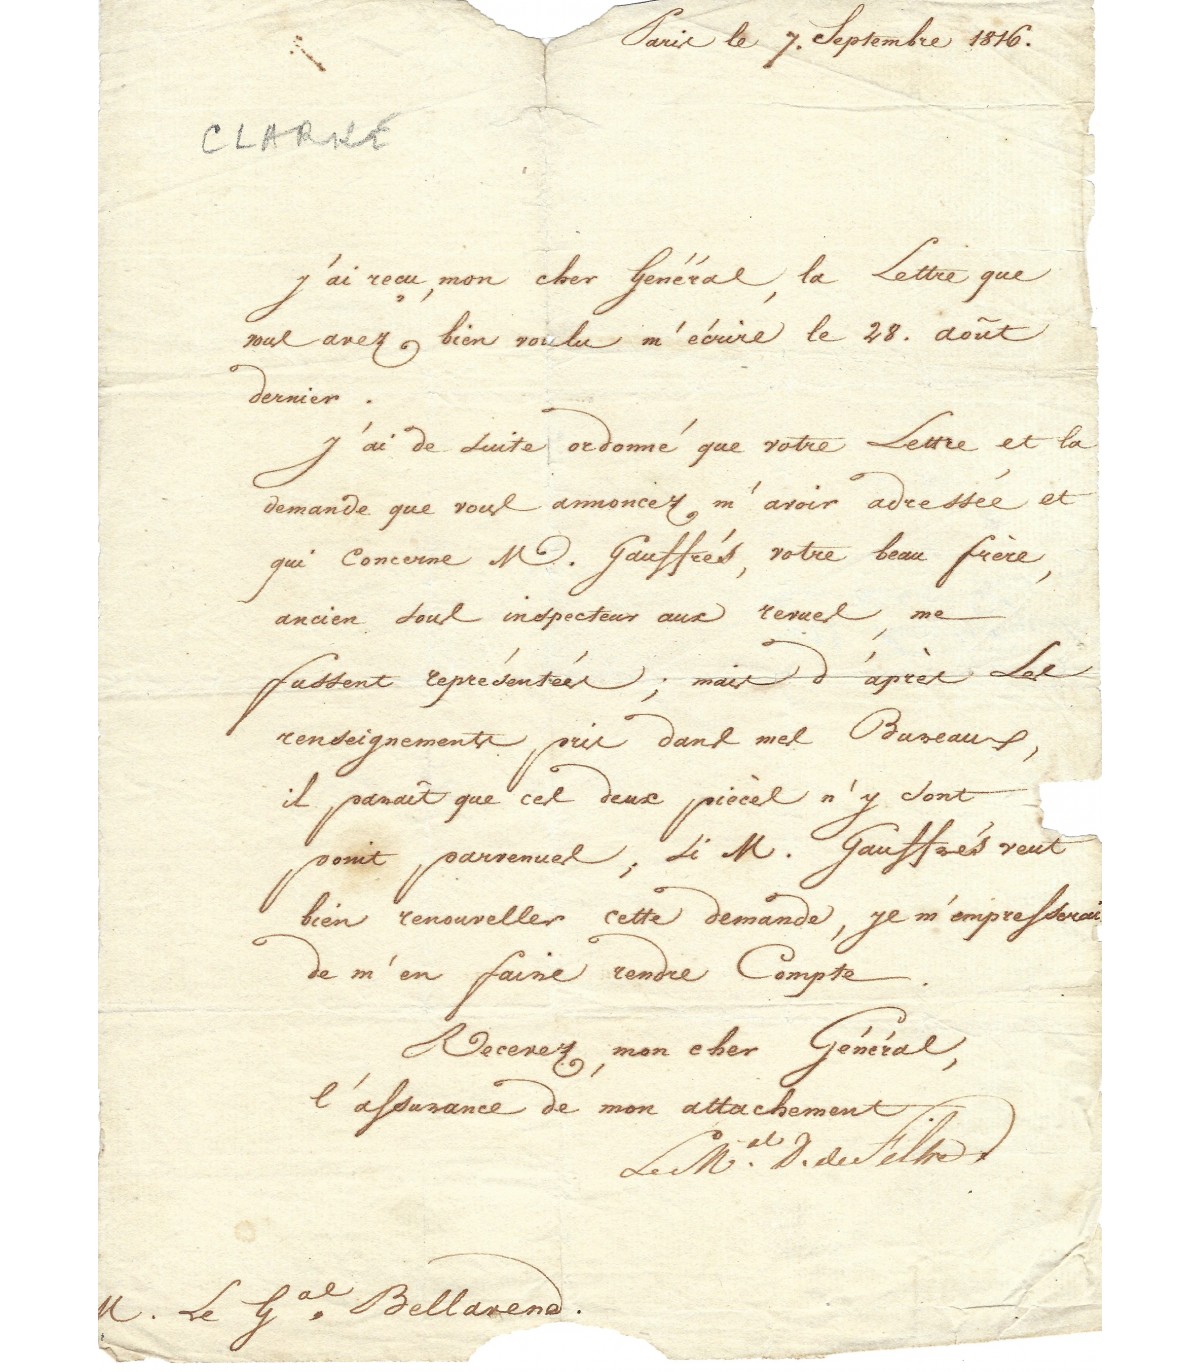 Paris le 7. Septembre 1816.
CLARKE
j'ai reçu, mon cher Général, la Lettre que
vous avez bien voulu m'écrire le 28. août
dernier.
j'ai de suite ordonné que votre Lettre et la
demande que vous annoncez m'avoir adressée et
qui concerne M. Gauffrés, votre beau frère,
ancien sous inspecteur aux revues, me
fussent représentées; mais d'après Les
renseignements pris dans mes Bureaux,
il paraît que ces deux pièces n'y sont
point parvenues; si M. Gauffrés veut
bien renouveller cette demande, je m'empresserai
de m'en faire rendre Compte.
Recevez, mon cher Général,
l'assurance de mon attachement
Le M.al D. de Feltre
M. Le G.al Bellavene.